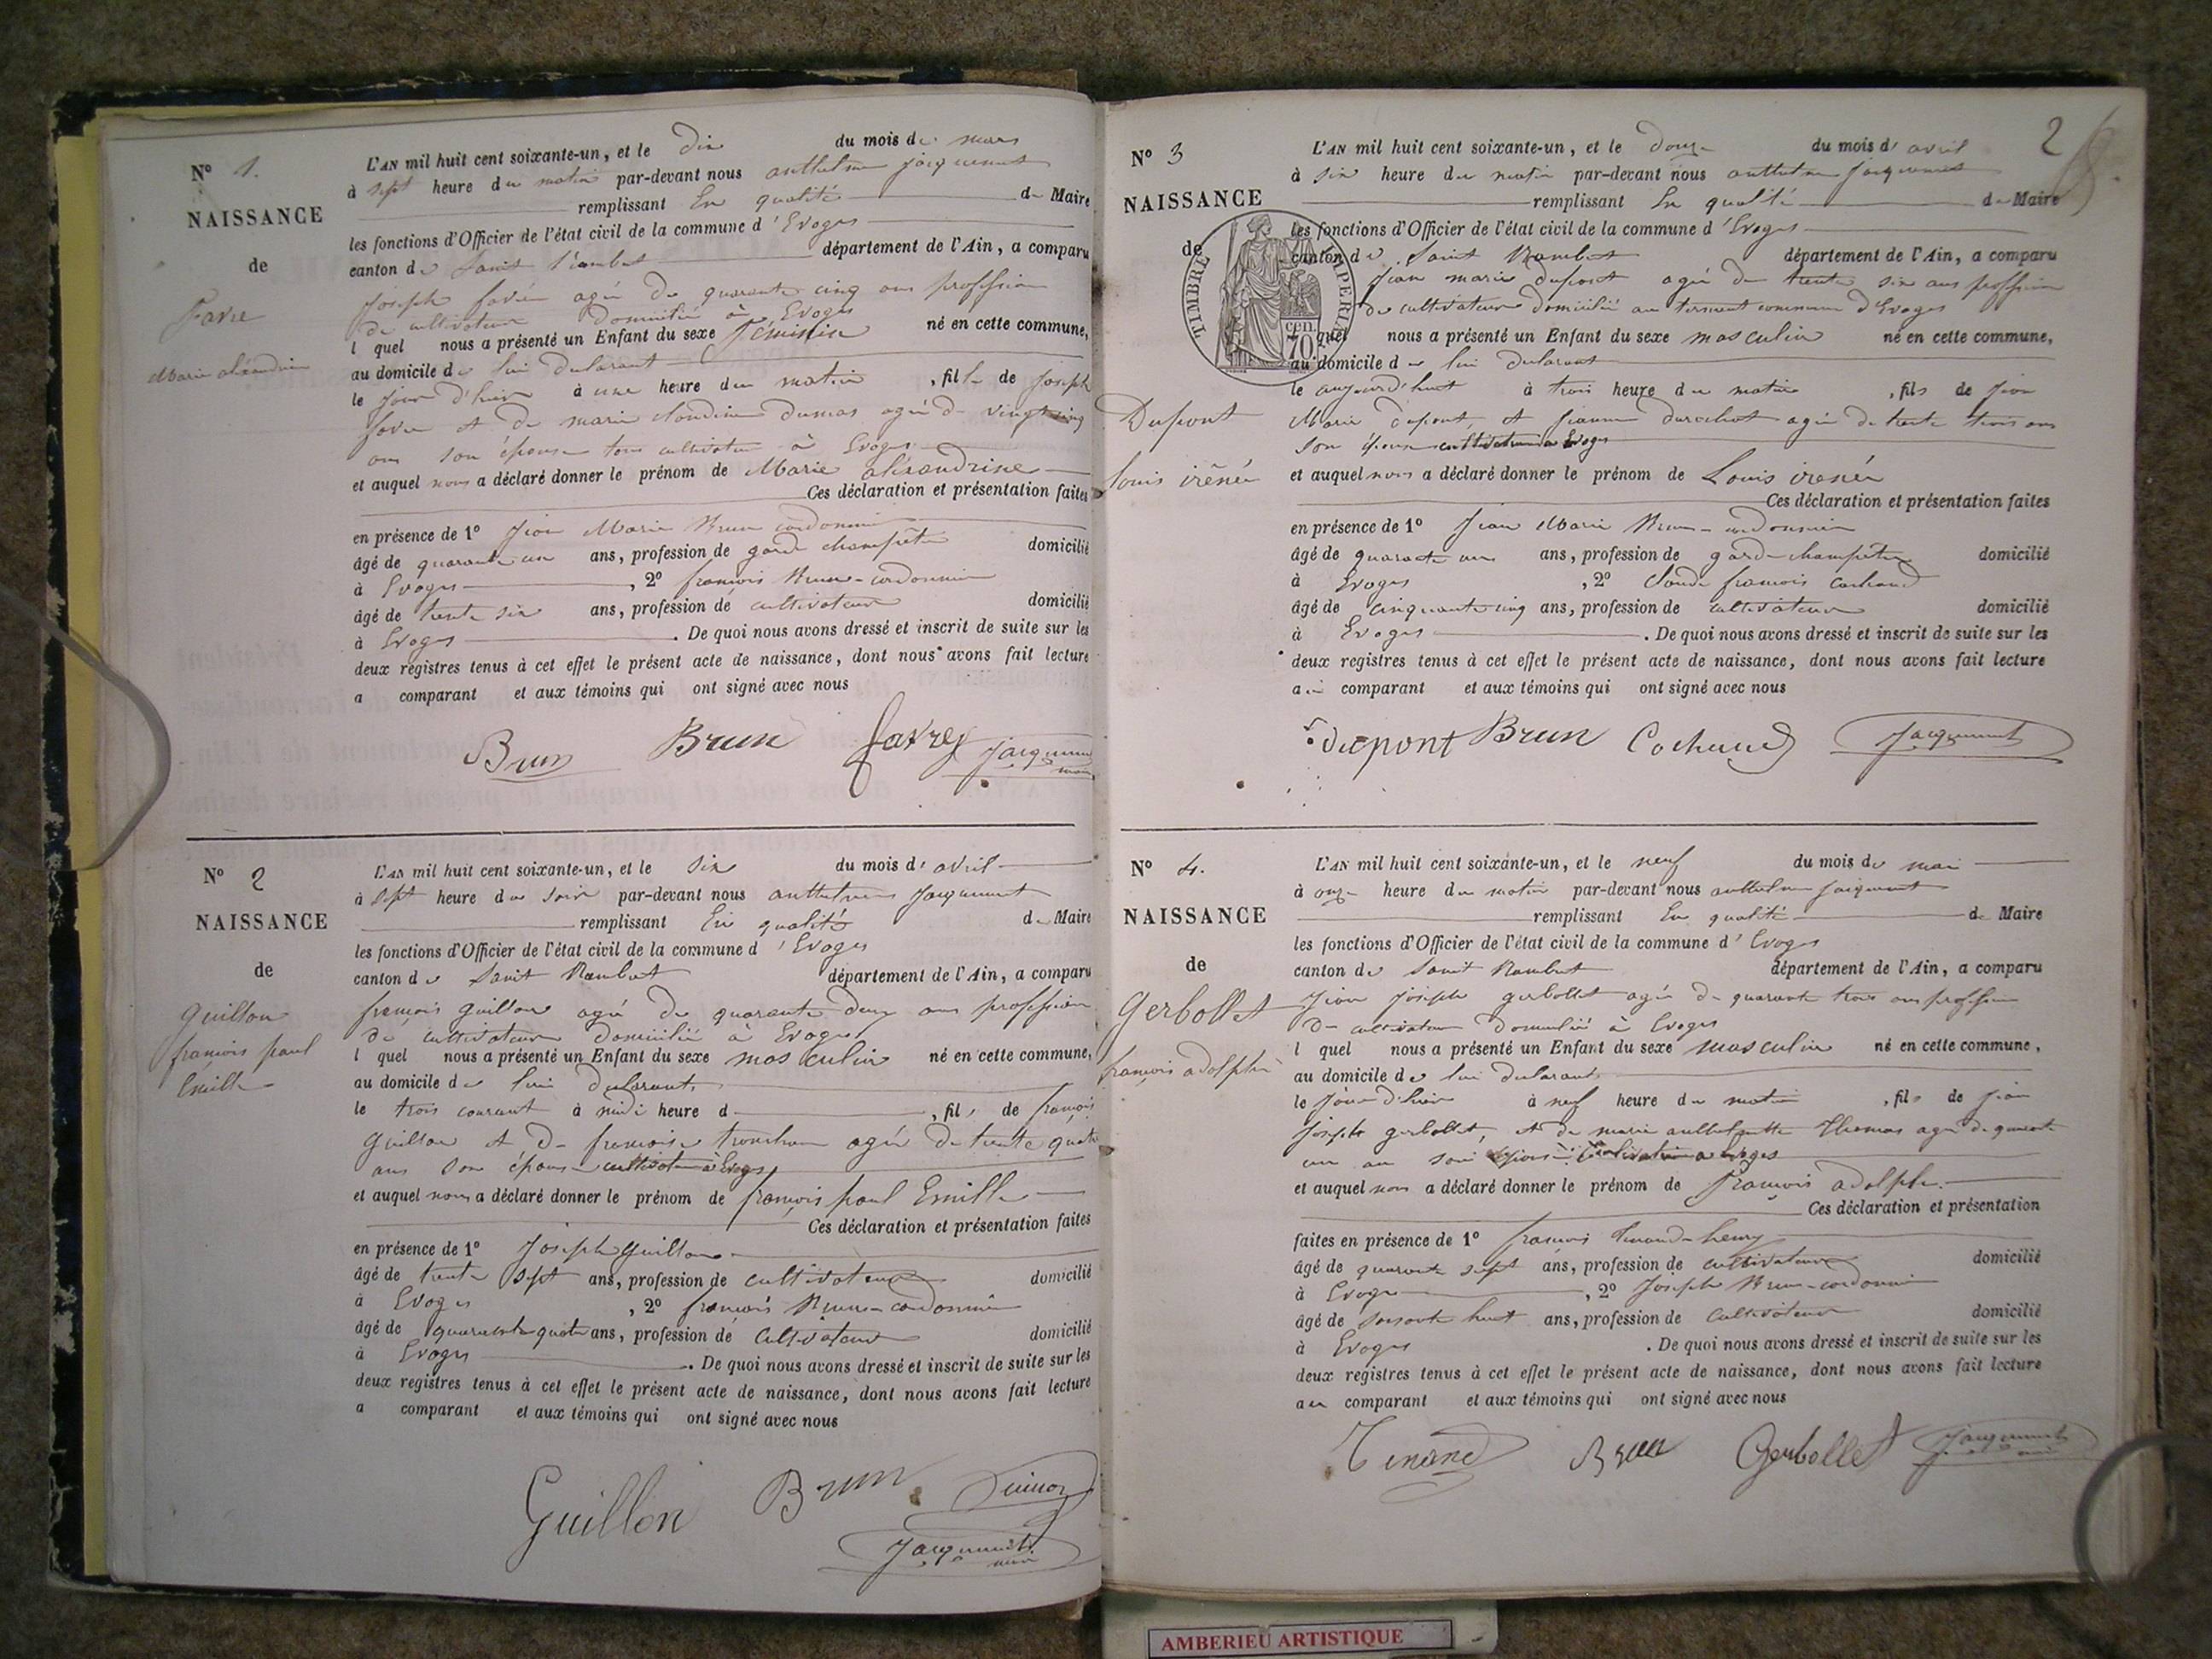 N° 1.
NAISSANCE
de
Favre
Marie alexandrine
L'AN mil huit cent soixante-un, et le dix du mois de mars
à sept heure du matin par-devant nous anthelme Jacquemet
remplissant En qualité de Maire
les fonctions d'Officier de l'état civil de la commune d'Evoges
canton de Saint Rambert département de l'Ain, a comparu
Joseph favre agé de quarante cinq ans profession
de cultivateur domicilié à Evoges
l quel nous a présenté un Enfant du sexe féminin né en cette commune,
au domicile de lui déclarant
le jour d'hier à une heure du matin, fille de Joseph
favre et de marie claudine dumas agée de vingt cinq
ans son épouse tous cultivateur à Evoges
et auquel nous a déclaré donner le prénom de Marie alexandrine
Ces déclaration et présentation faites
en présence de 1° Jean Marie Brun-cordonnier
âgé de quarante un ans, profession de garde champêtre domicilié
à Evoges, 2° françois Brun-cordonnier
âgé de trente six ans, profession de cultivateur domicilié
à Evoges. De quoi nous avons dressé et inscrit de suite sur les
deux registres tenus à cet effet le présent acte de naissance, dont nous avons fait lecture
a comparant et aux témoins qui ont signé avec nous
Brun Brun favre Jacquemet
maire
N° 2
NAISSANCE
de
Guillon
françois paul
Emille
L'AN mil huit cent soixante-un, et le six du mois d'avril
à sept heure du soir par-devant nous anthelme Jacquemet
remplissant En qualité de Maire
les fonctions d'Officier de l'état civil de la commune d'Evoges
canton de Saint Rambert département de l'Ain, a comparu
françois guillon agé de quarante deux ans profession
de cultivateur domicilié à Evoges
l quel nous a présenté un Enfant du sexe masculin né en cette commune,
au domicile de lui déclarant
le trois courant à midi heure d, fils de françois
Guillon et de françoise agée de trente quatre
ans son épouse cultivateur à Evoges
et auquel nous a déclaré donner le prénom de françois paul Emille
Ces déclaration et présentation faites
en présence de 1° Joseph Guillon
âgé de trente sept ans, profession de cultivateur domicilié
à Evoges, 2° françois Brun-cordonnier
âgé de quarante quatre ans, profession de cultivateur domicilié
à Evoges. De quoi nous avons dressé et inscrit de suite sur les
deux registres tenus à cet effet le présent acte de naissance, dont nous avons fait lecture
a comparant et aux témoins qui ont signé avec nous
Guillon Brun
Jacquemet
maire
2
N° 3
NAISSANCE
de
TIMBRE IMPERIAL
70 cen.
Dupont
Louis irénée
L'AN mil huit cent soixante-un, et le douze du mois d'avril
à six heure du matin par-devant nous anthelme Jacquemet
remplissant En qualité de Maire
les fonctions d'Officier de l'état civil de la commune d'Evoges
canton de Saint Rambert département de l'Ain, a comparu
Jean marie dupont agé de trente six ans profession
de cultivateur domicilié au commune d'Evoges
quel nous a présenté un Enfant du sexe masculin né en cette commune,
au domicile de lui déclarant
le aujourd'huit à trois heure du matin, fils de Jean
Marie dupont, et jeanne agée de trente trois ans
son épouse cultivateur à Evoges
et auquel nous a déclaré donner le prénom de Louis irenée
Ces déclaration et présentation faites
en présence de 1° Jean Marie Brun-cordonnier
âgé de quarante un ans, profession de garde-champêtre domicilié
à Evoges, 2° Claude françois Cochand
âgé de cinquante cinq ans, profession de cultivateur domicilié
à Evoges. De quoi nous avons dressé et inscrit de suite sur les
deux registres tenus à cet effet le présent acte de naissance, dont nous avons fait lecture
au comparant et aux témoins qui ont signé avec nous
dupont Brun Cochand Jacquemet
N° 4.
NAISSANCE
de
Gerbollet
françois adolphe
L'AN mil huit cent soixante-un, et le neuf du mois de mai
à onze heure du matin par-devant nous anthelme Jacquemet
remplissant En qualité de Maire
les fonctions d'Officier de l'état civil de la commune d'Evoges
canton de Saint Rambert département de l'Ain, a comparu
Jean Joseph gerbollet agé de quarante trois ans profession
de cultivateur domicilié à Evoges
l quel nous a présenté un Enfant du sexe masculin né en cette commune,
au domicile de lui déclarant
le jour d'hier à neuf heure du matin, fils de jean
Joseph gerbollet, et de marie anthelmette Thomas agée de quarante
un an son épouse cultivateur à Evoges
et auquel nous a déclaré donner le prénom de françois adolphe.
Ces déclaration et présentation
faites en présence de 1° françois Tenand-henry
âgé de quarante sept ans, profession de cultivateur domicilié
à Evoges, 2° Joseph Brun-cordonnier
âgé de soixante huit ans, profession de cultivateur domicilié
à Evoges. De quoi nous avons dressé et inscrit de suite sur les
deux registres tenus à cet effet le présent acte de naissance, dont nous avons fait lecture
au comparant et aux témoins qui ont signé avec nous
Tenand Brun Gerbollet Jacquemet
AMBERIEU ARTISTIQUE